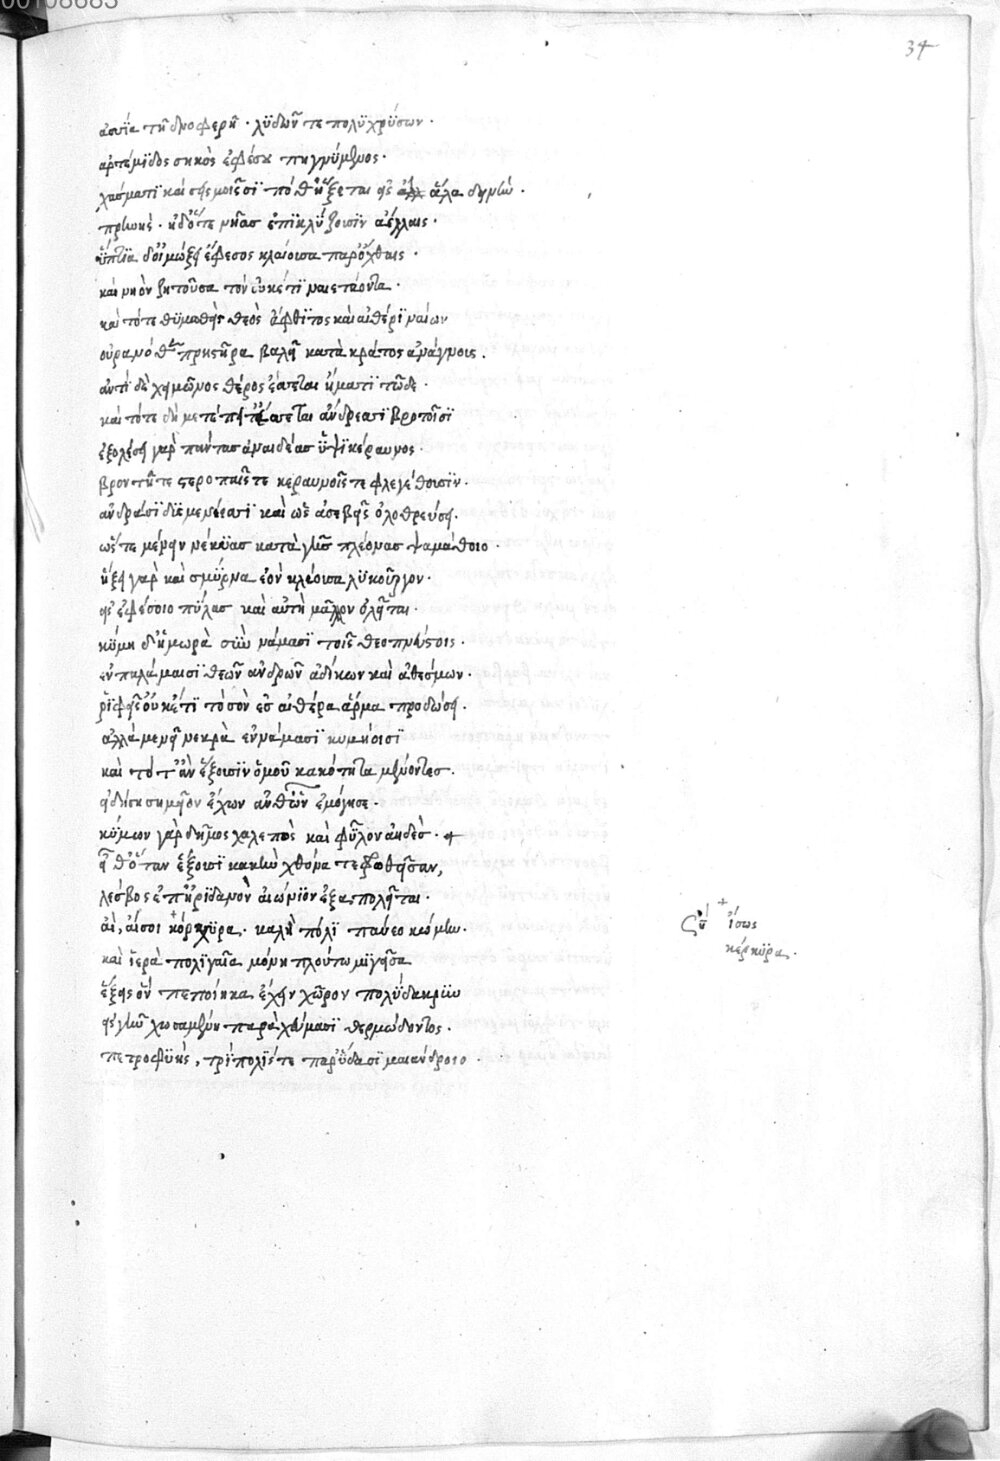 34
ἀσίδα τῆ δνοφερῆ · λυδῶν τε πολυχρύσων ·
ἀρτέμιδος σηκὸς ἐφέσου πηγνύμενος ·
χάσμασι καὶ σεισμοῖσι ποθ' ἥξεται εἰς ἅλα δεινὴν ·
πρηνὴς · ἠδ' ὅτε νῆας ἐπικλύζουσιν ἀέλλαις ·
ὕπτια δ' οἰμώξει ἔφεσος κλαίουσα παρ' ὄχθαις ·
καὶ νηὸν ζητοῦσα τὸν οὐκέτι ναιετάοντα ·
καὶ τότε θυμωθεὶς θεὸς ἄφθιτος καὶ αἰθέρι ναίων
οὐρανόθεν πρηστῆρα βαλεῖ κατὰ κράτος ἀνάγνοις ·
ἀντὶ δὲ χειμῶνος θέρος ἔσσεται ἤματι τῶδε ·
καὶ τότε δὴ μετέπειτ' ἔσσεται ἄνδρεσι βροτοῖσι
ἐξολέσει γὰρ πάντας ἀναιδέας ὑψικέραυνος ·
βροντῆς τε στεροπαῖς τε κεραυνοῖς τε φλεγέθουσιν ·
ἀνδράσι δυσμενέεσσι καὶ ὡς ἀσεβεῖς ὀλοθρεύσει ·
ὥστε μένειν νέκυας κατὰ γῆς πλέονας ψαμάθοιο ·
ἥξει γὰρ καὶ σμύρνα ἑὸν κλέουσα λυκοῦργον ·
εἰς ἐφέσοιο πύλας καὶ αὐτὴ μᾶλλον ὀλεῖται ·
κύμη δ' ἡ μωρὰ σὺν νάμασι τοῖς θεοπνεύστοις ·
ἐν παλάμαισι θεῶν ἀνδρῶν ἀδίκων καὶ ἀθέσμων ·
ῥιφθεῖσ' οὐκέτι τόσον ἐς αἰθέρα ἅρμα προδώσει ·
ἀλλὰ μενεῖ νεκρὰ ἐν νάμασι κυμαίοισι
καὶ τότ' ἂν ἕξουσιν ὁμοῦ κακότητα μένοντες ·
εἰδήσει σημεῖον ἔχων ἀνθ' ὧν ἐμόγησε ·
κύμων γὰρ δῆμος χαλεπὸς καὶ φῦλον ἀηδὲς · +
εἶθ' ὅταν ἕξουσι κακὴν χθόνα τεφρωθεῖσαν,
λέσβος ἐπ' ἠριδανὸν αἰώνιον ἐξαπολεῖται ·
αἲ, αἲ σοι κόρκυρα · καλὴ πόλι παύεο κώμων ·
καὶ ἱερὰ πόλι γαῖα μόνη πλούτω μιγεῖσα
ἕξεις οὖν πεποίηκα ἔχειν χῶρον πολύδακρυν
εἰς γῆν χωσαμένη παρὰ χεύμασι θερμώδοντος ·
πετροφυὴς, τρίπολίς τε παρ' ὕδασι μαιάνδροιο ·
+ ἴσως
κέρκυρα ·